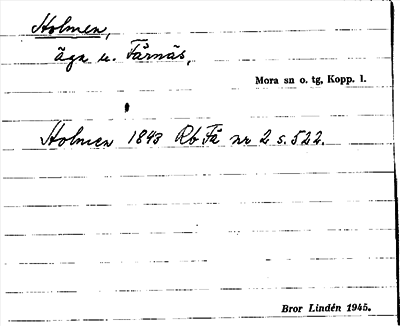 Holmen,
äga u. Färnäs,
Mora sn o. tg, Kopp. l.
Holmen 1843 Rb Få nr 2 s. 522.
Bror Lindén 1945.